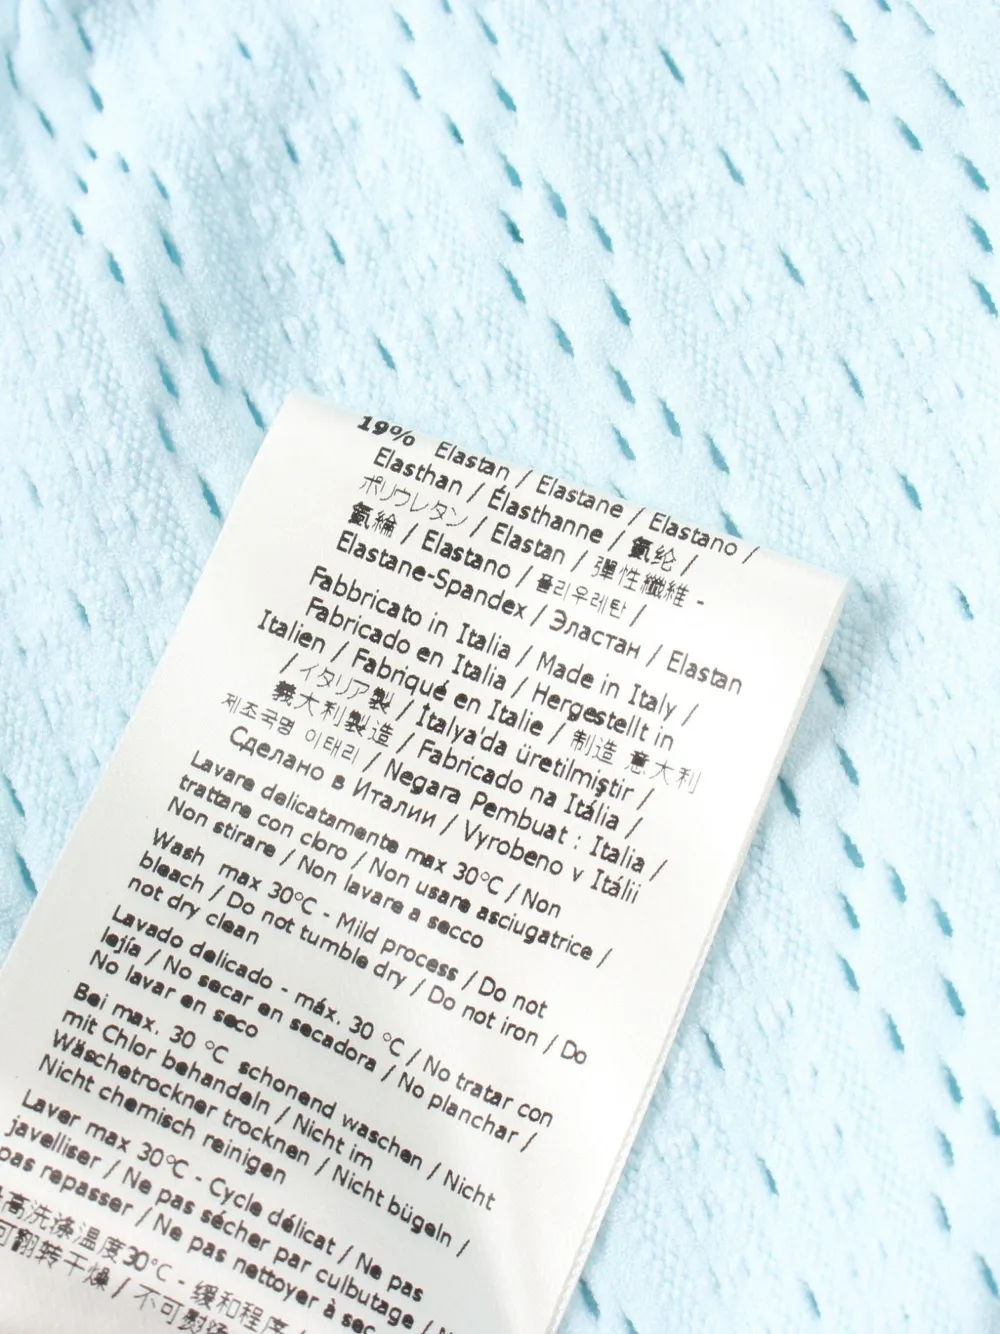 19% Elastan / Elastane / Elastano /
Elasthan / Élasthanne / 氨纶 /
ポリウレタン / Elastan / 彈性纖維 -
氨綸 / Elastano / 폴리우레탄 /
Elastane-Spandex / Эластан / Elastan
Fabbricato in Italia / Made in Italy /
Fabricado en Italia / Hergestellt in
Italien / Fabriqué en Italie / 制造 意大利
/ イタリア製 / İtalya'da üretilmiştir /
義大利製造 / Fabricado na Itália /
제조국명 이태리 / Negara Pembuat : Italia /
Сделано в Италии / Vyrobeno v Itálii
Lavare delicatamente max 30°C / Non
trattare con cloro / Non usare asciugatrice /
Non stirare / Non lavare a secco
Wash max 30°C - Mild process / Do not
bleach / Do not tumble dry / Do not iron / Do
not dry clean
Lavado delicado - máx. 30 °C / No tratar con
lejía / No secar en secadora / No planchar /
No lavar en seco
Bei max. 30 °C schonend waschen / Nicht
mit Chlor behandeln / Nicht im
Wäschetrockner trocknen / Nicht bügeln /
Nicht chemisch reinigen
Laver max 30°C - Cycle délicat / Ne pas
javelliser / Ne pas sécher par culbutage /
pas repasser / Ne pas nettoyer à sec
高洗涤温度30°C - 缓和程序 /
可翻转干燥 / 不可熨烫